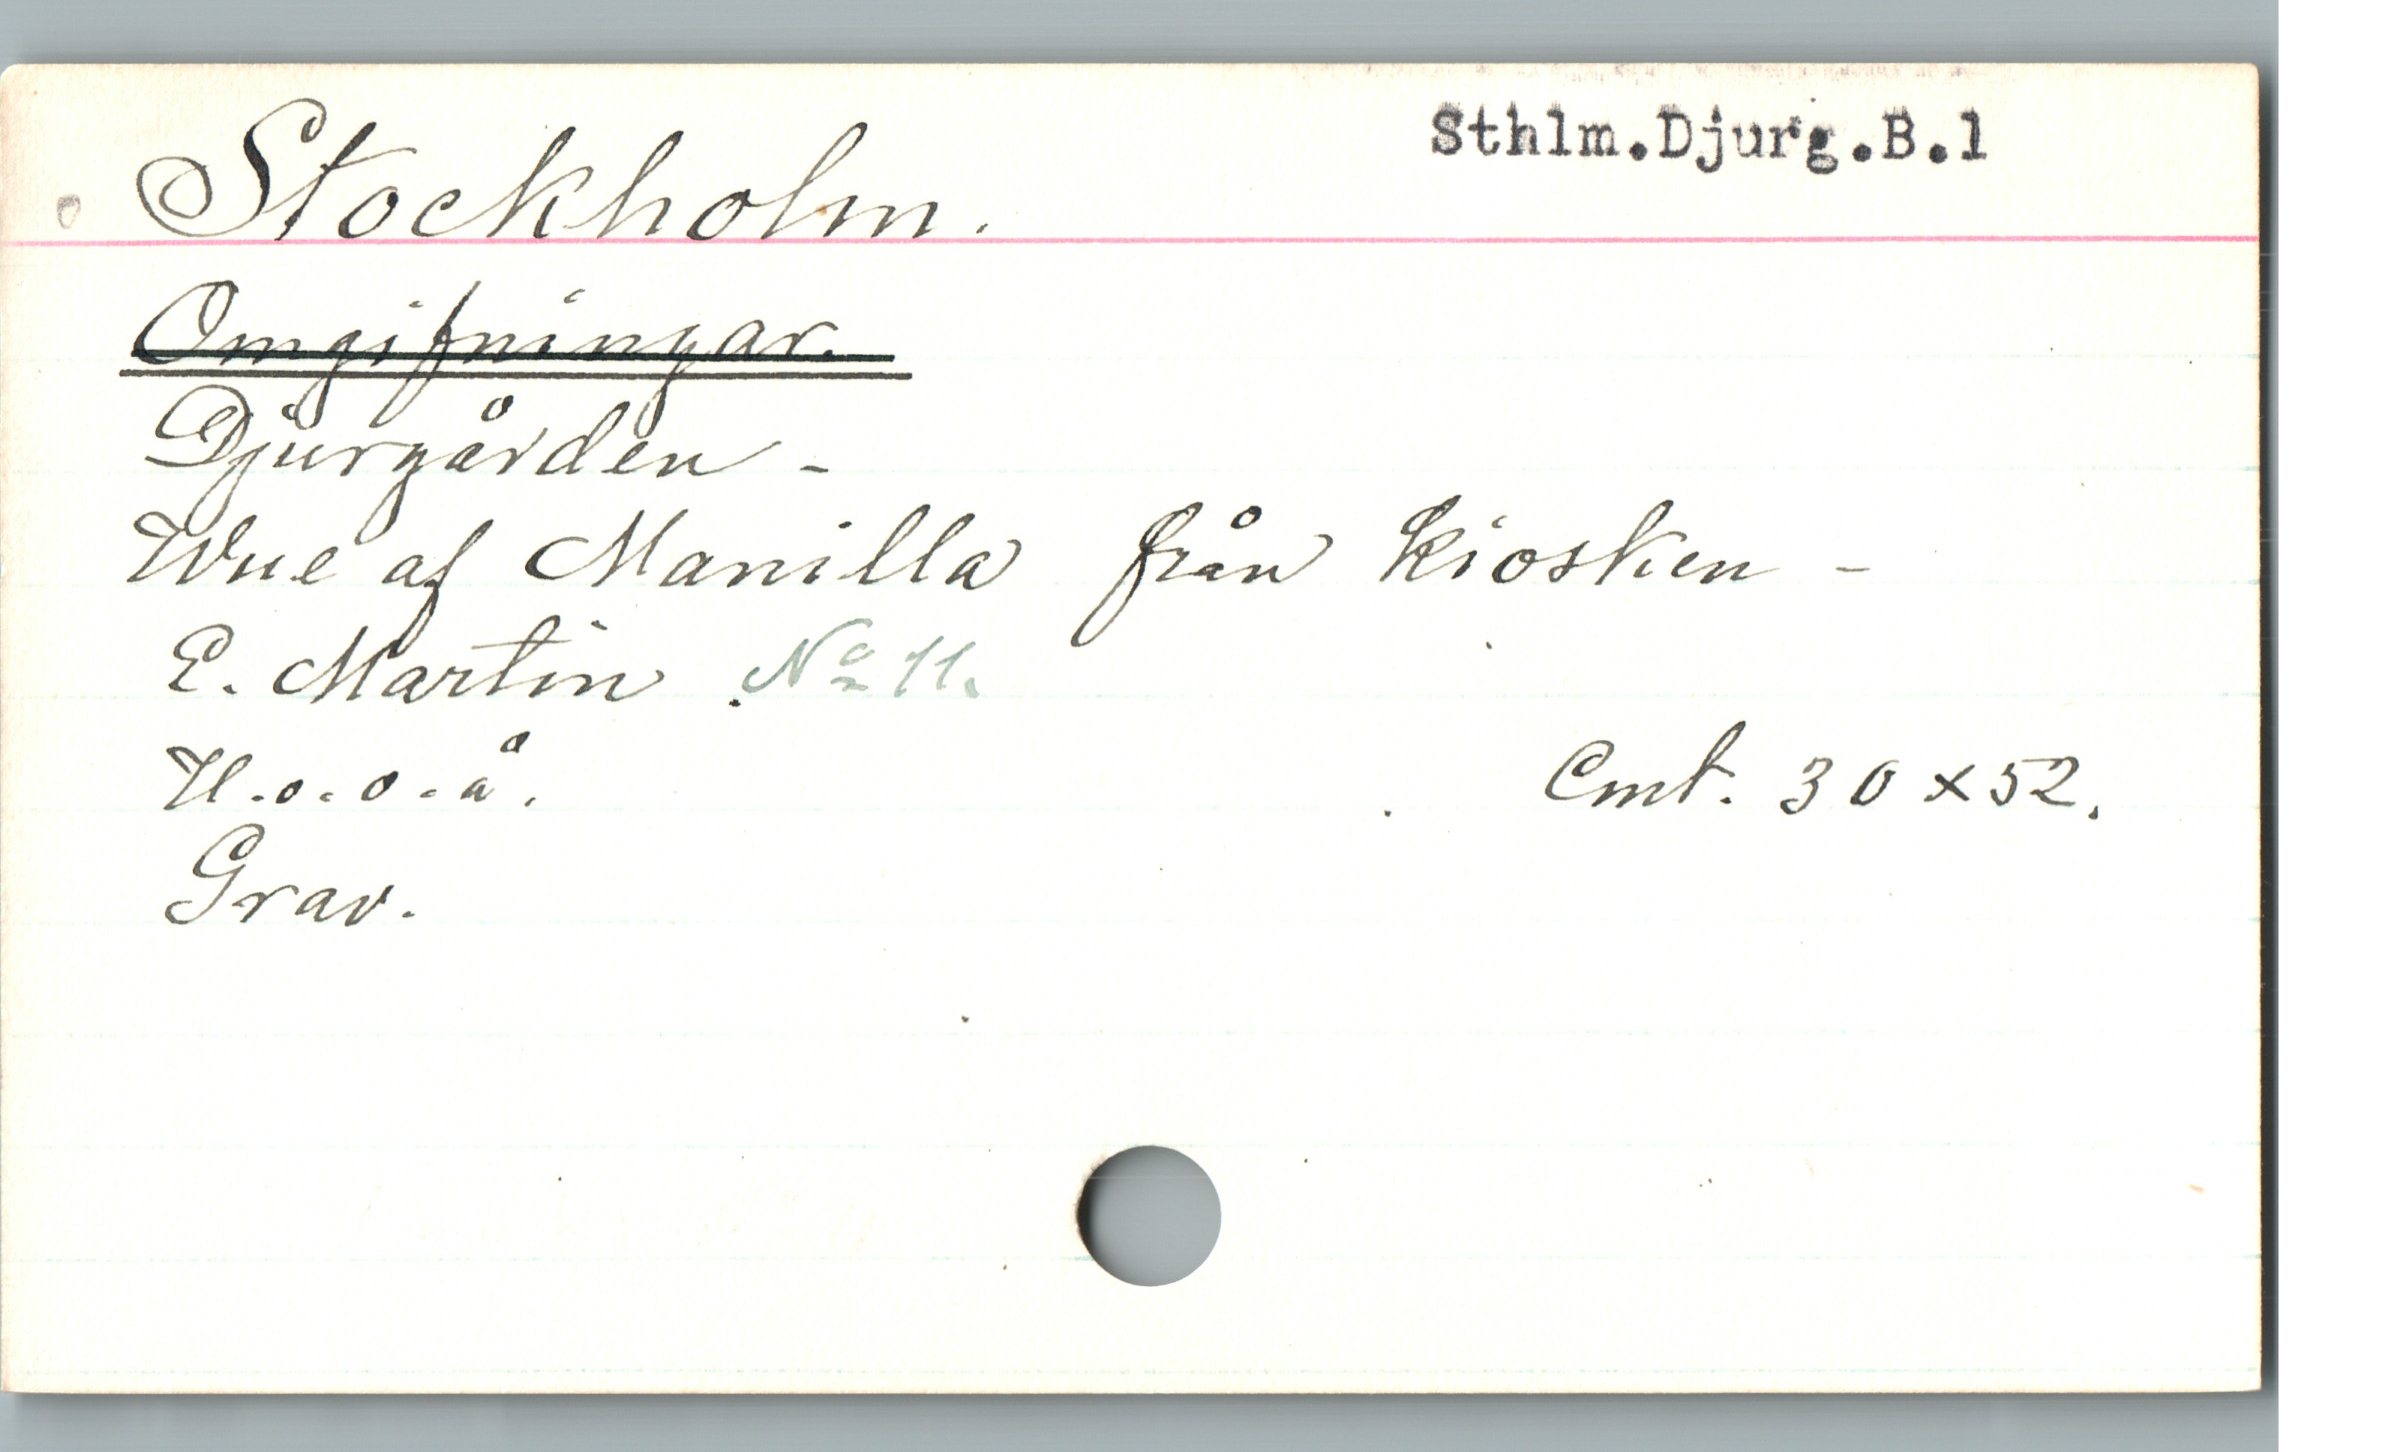 Stockholm.
Sthlm.Djurg.B.1
Omgifningar.
Djurgården -
Wue af Manilla från kiosken -
E. Martin No 11.
U.o.o.å.
Cmt. 30 x 52.
Grav.